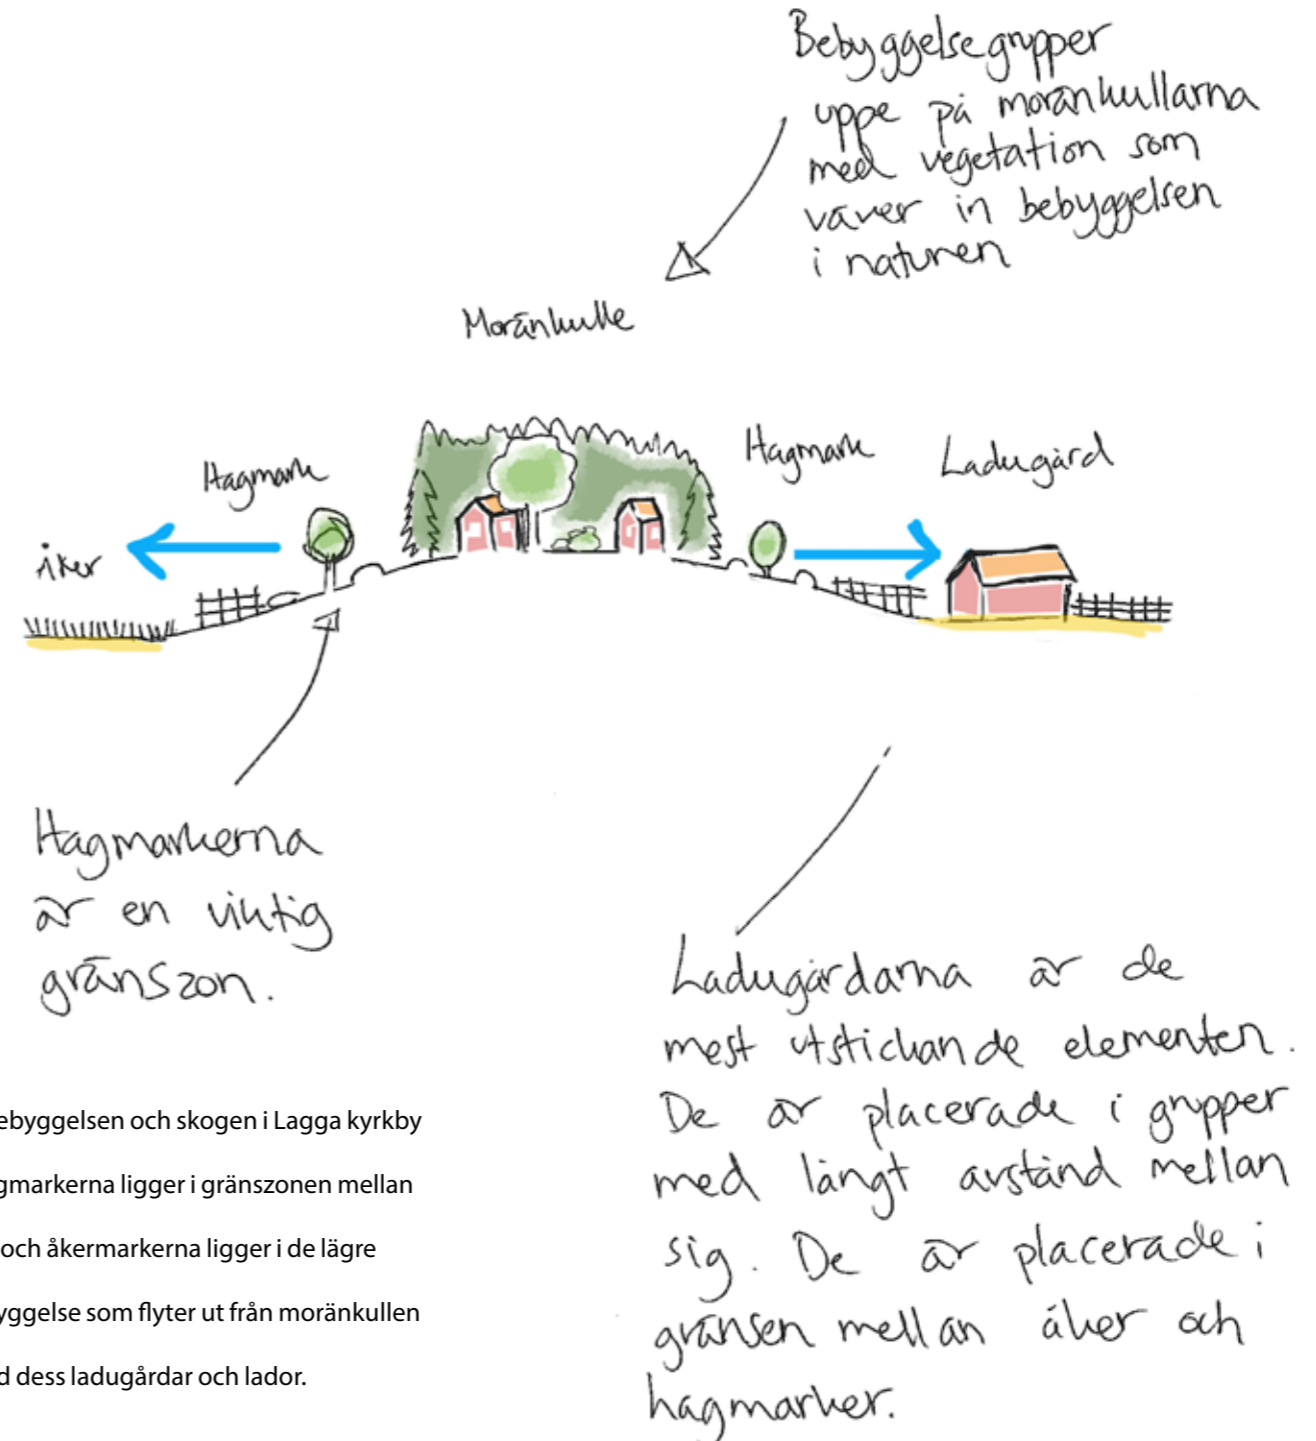 Bebyggelsegrupper
uppe på moränkullarna
med vegetation som
väver in bebyggelsen
i naturen
Moränkulle
Hagmark
Hagmark
Ladugård
åker
Hagmarkerna
är en viktig
gränszon.
Ladugårdarna är de
mest utstickande elementen.
De är placerade i grupper
med långt avstånd mellan
sig. De är placerade i
gränsen mellan åker och
hagmarker.
ebyggelsen och skogen i Lagga kyrkby
gmarkerna ligger i gränszonen mellan
och åkermarkerna ligger i de lägre
yggelse som flyter ut från moränkullen
d dess ladugårdar och lador.